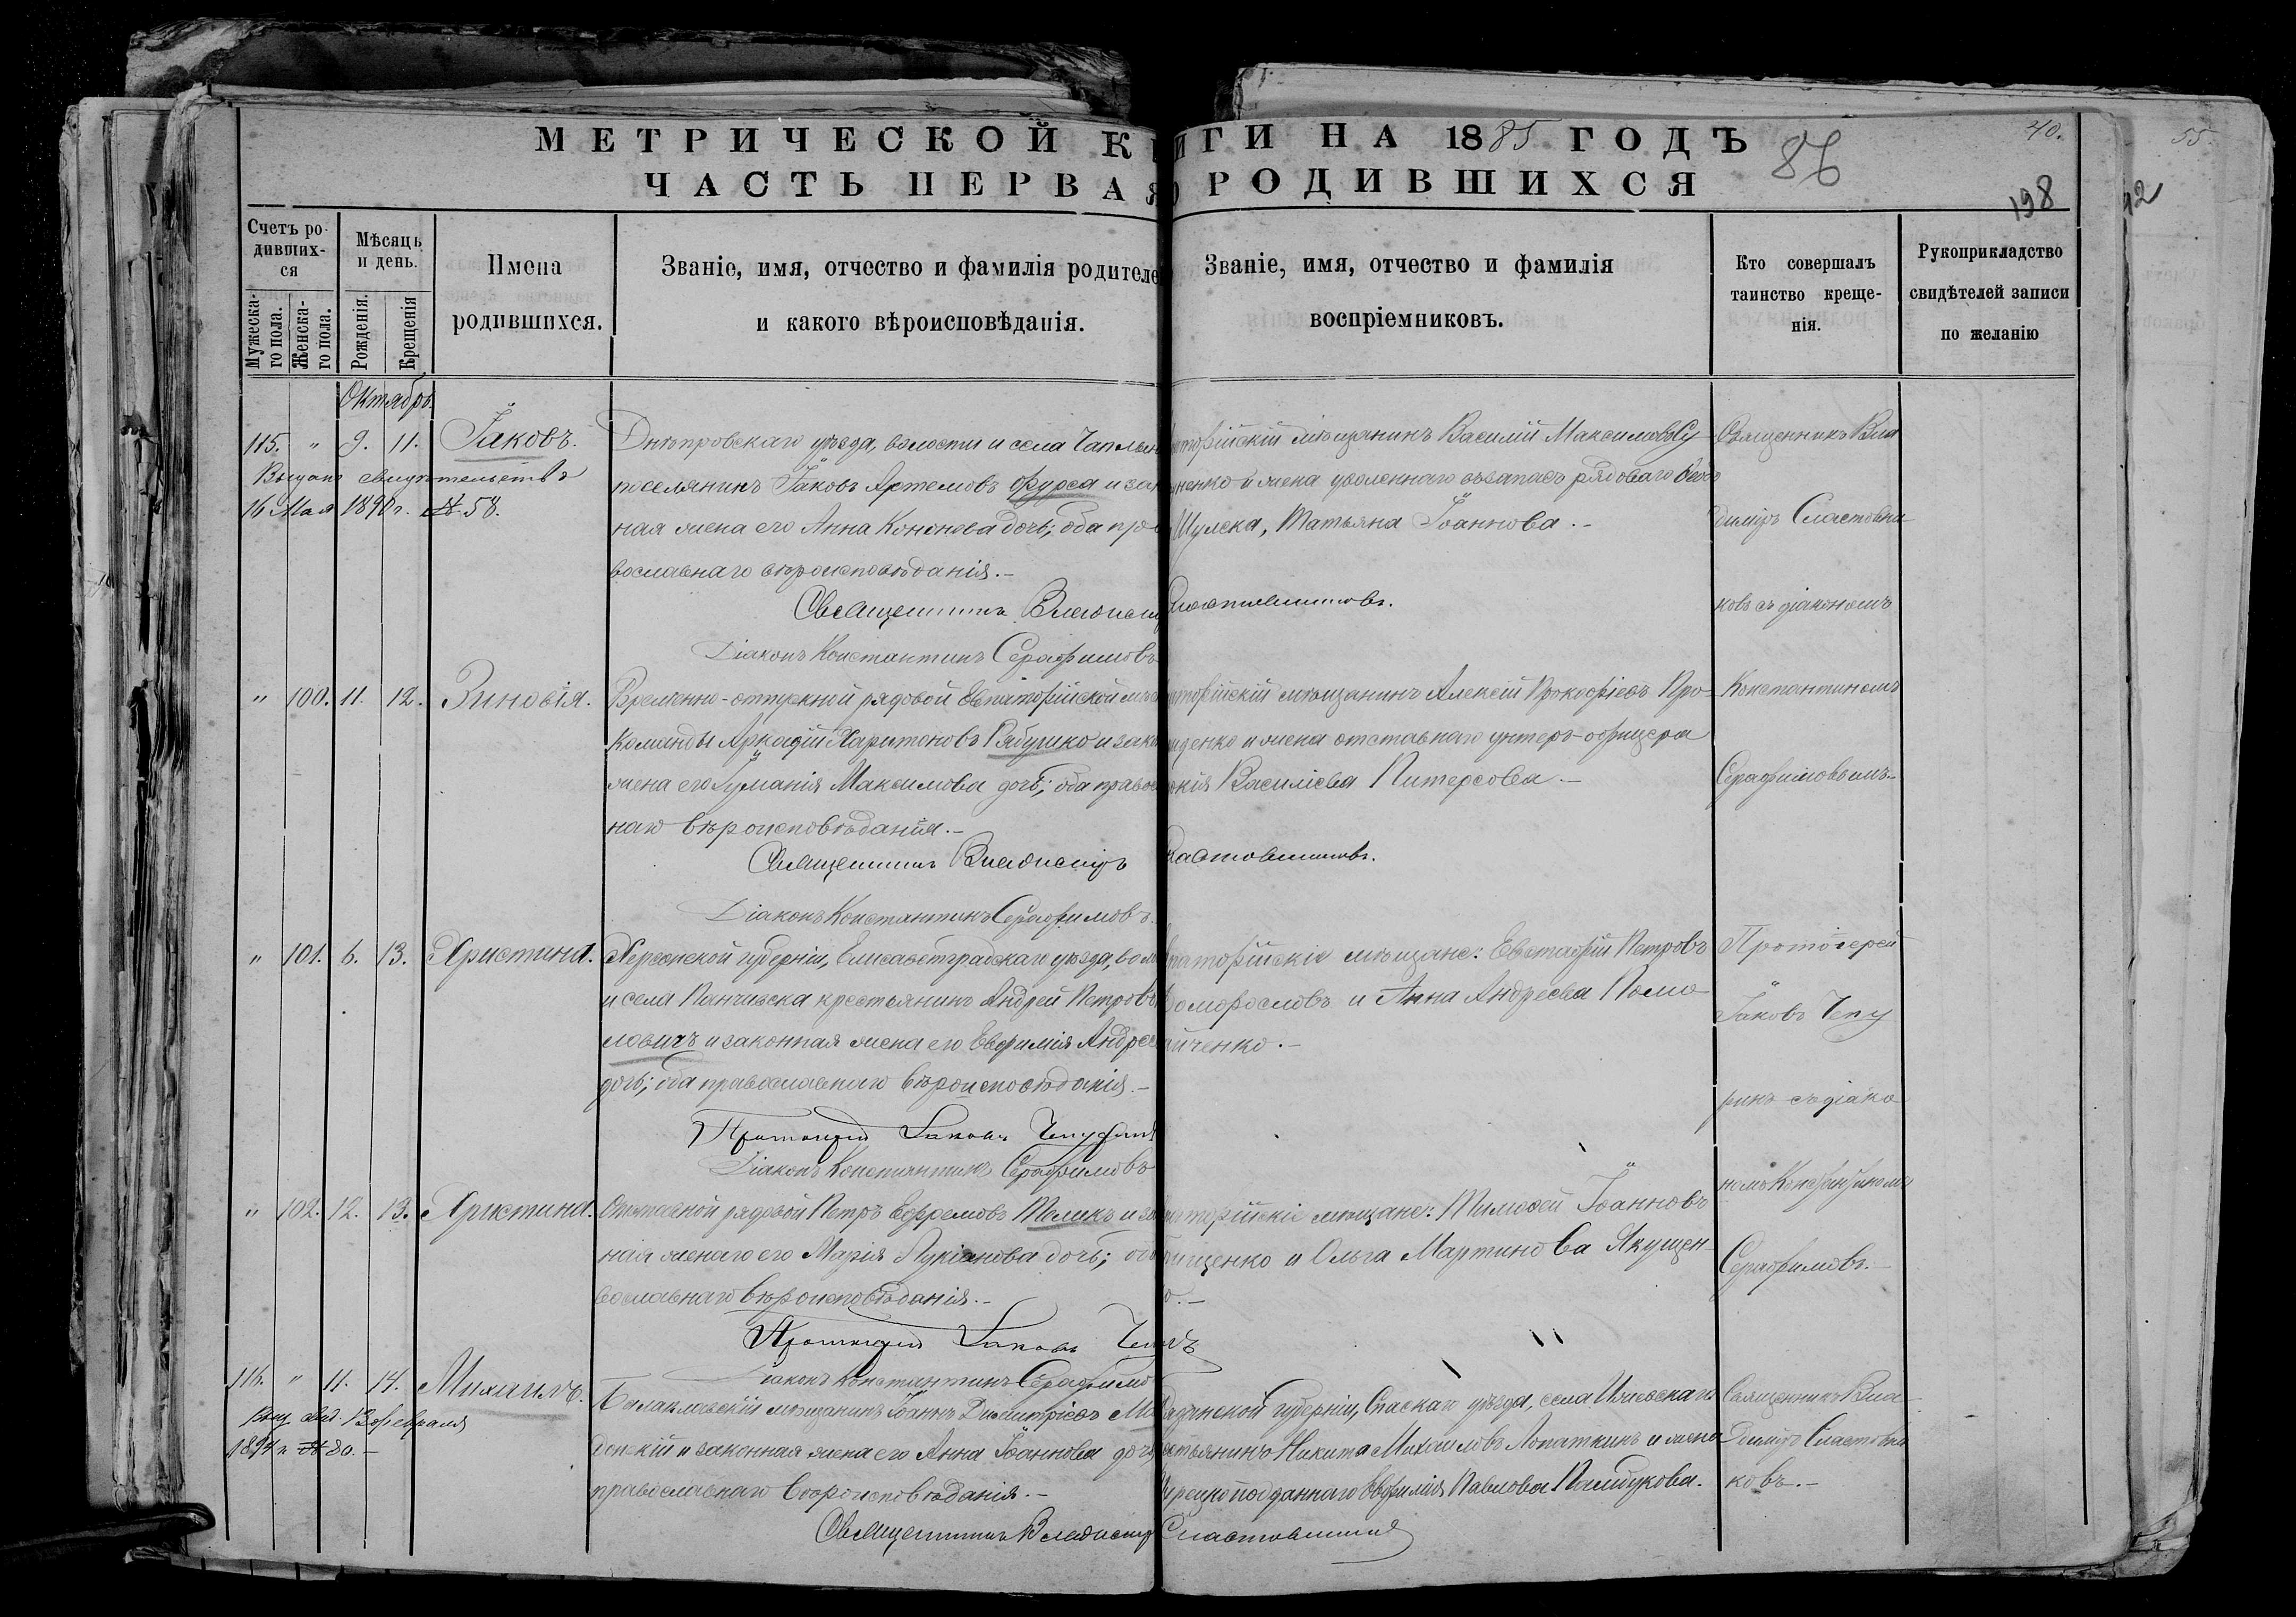 МЕТРИЧЕСКОЙ К ИГИ НА 1885 ГОДЪ
ЧАСТЬ ПЕРВАЯ О РОДИВШИХСЯ
86
40.
198
55.
Счетъ ро-
дивших-
ся
Мужеска-
го пола.
Женска-
го пола.
Мѣсяцъ
и день.
Рожденія.
Крещенія
Имена
родившихся.
Званіе, имя, отчество и фамилія родителе
и какого вѣроисповѣданія.
Званіе, имя, отчество и фамилія
воспріемниковъ.
Кто совершалъ
таинство креще-
нія.
Рукоприкладство
свидѣтелей записи
по желанію
Октябрь.
115. " 9. 11. Іаковъ.
Выдано свидѣтельство
16 Мая 1890 г. № 58.
Днѣпровскаго уѣзда, волости и села Чаплын
поселянинъ Іаковъ Артемовъ Фурса и зак
ная жена его Анна Кононова дочь; оба пра
вославнаго вѣроисповѣданія.-
Священникъ Владимір
Діаконъ Константинъ Серафимовъ
аторійскій мѣщанинъ Василій Максимовъ Су-
ненко и жена уволеннаго въ запасъ рядоваго
Шулека, Татьяна Іоаннова.-
Сластовниковъ.
Священникъ Вла
диміръ Сластовни
ковъ съ діакономъ
Константиномъ
Серафимовымъ.-
" 100. 11. 12. Зиновія.
Временно-отпускной рядовой Евпаторійской мѣс
команды Аркадій Харитоновъ Рябушко и зако
жена его Іуліанія Максимова дочь; оба правос
наго вѣроисповѣданія.-
Священникъ Владиміръ
Діаконъ Константинъ Серафимовъ.
аторійскій мѣщанинъ Алексій Прокофіевъ Про-
иденко и жена отставнаго унтеръ-офицера
окія Василіева Питерсова.-
ластовниковъ.
" 101. 6. 13. Христина.
Херсонской губерніи, Елисаветградскаго уѣзда, вол
и села Панчевска крестьянинъ Андрей Петровъ
ловичъ и законная жена его Евфимія Андрее
дочь; оба православнаго вѣроисповѣданія.-
Протоіерей Іаковъ Чепурин
Діаконъ Константинъ Серафимовъ
паторійскіе мѣщане: Евстафій Петровъ
оморословъ и Анна Андреева
йченко.-
Протоіерей
Іаковъ Чепу
ринъ съ діако
номъ Константиномъ
Серафимовъ.-
" 102. 12. 13. Христина.
Отставной рядовой Петръ Ефремовъ Теликъ и за
ная жена его Марія Лукіанова дочь; об
вославнаго вѣроисповѣданія.-
Протоіерей Іаковъ Чеп
Діаконъ Константинъ Серафимо
аторійскіе мѣщане: Тимофей Іоанновъ
ищенко и Ольга Мартинова Якущен-
о.-
116. " 11. 14. Михаилъ.
Выд. свид. 13 февраля
1894 г. № 80.-
Балаклавскій мѣщанинъ Іоаннъ Димитріевъ Ма
донскій и законная жена его Анна Іоаннова дочь
православнаго вѣроисповѣданія.-
Священникъ Владимір
язанской губерніи, Спаскаго уѣзда, села Ижевскаго
стьянинъ Никита Михаиловъ Лопаткинъ и жена
урецкоподданнаго Евфимія Павлова
Сластовников
Священникъ Вла-
диміръ Сластовни
ковъ.-